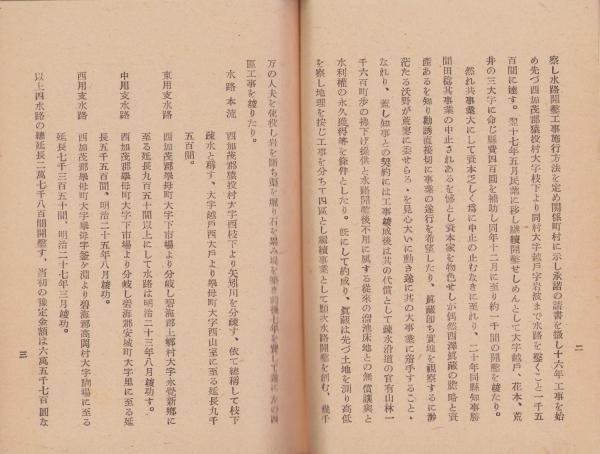 二
察し水路開鑿工事施行方法を定め關係町村に示し承諾の請書を徴し十六年工事を始
め先づ西加茂郡猿投村大字枝下より同村大字越戸字岩波まで水路を鑿くこと一千五
百間に達す。翌十七年五月民業に移し繼續開鑿せしめんとして大字越戸、花本、荒
井の三大字に命じ縣費四百圓を補助し同年十二月に至り約一千間の開鑿を竣たり。
然れ共事業大にして資本乏しく爲に中止の止むなきに至れり、二十年同縣知事勝
間田稔其事業の中止されあるを憾とし資本家を物色せしが偶然西澤眞藏の膽略と資
產あるを知り勸誘直接切に事業の遂行を希望したり、眞藏即ち實地を觀察するに渺
茫たる沃野が荒蕪に委せらる・を見心大いに動き遂に其の大事業に着手すること・
なれり、蓋し知事との契約には工事竣成後は其の代償として疎水沿道の官有山林一
千六百町歩の拂下げ提供と水路開鑿後不用に屬する從來の溜池床地との無償讓與と
水利權の永久獲得等を條件としたり。既にして約成り、眞藏は先づ土地を測り高低
を察し地理を按じ工事を分ちて四區とし繼續事業として順次水路開鑿を創む、幾千
万の人夫を使役し岩を斷ち堀を堀り石を累み堤を築き前後七年を費して遂に左の四
區工事を竣りたり。
水路本流 西加茂郡猿投村大字西枝下より矢矧川を分疏す、依て總稱して枝下
疎水と稱す、大字越戸西大戸より擧母町大字西山室に至る延長九千
五百間。
東用支水路 西加茂郡擧母町大字下市場より分岐し碧海郡上鄉村大字永覺新鄉に
至る延長九百五十間以上にして水路は明治二十三年八月竣功す。
中用支水路 西加茂郡擧母町大字下市場より分岐し碧海郡安城町大字里に至る延
長五千五百間、明治二十五年八月竣功。
西用支水路 西加茂郡擧母町大字擧母字釜ケ淵より碧海郡高岡村大字駒場に至る
延長七千三百五十間、明治二十七年三月竣功。
以上四水路の總延長二萬七千八百間開鑿す、當初の豫定金額は六萬五千七百圓な
三